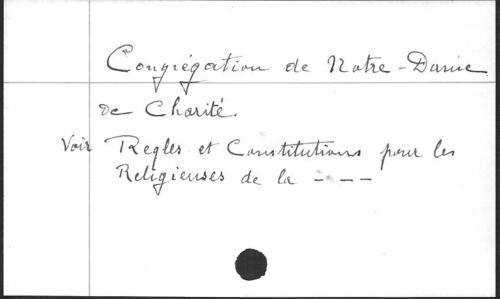 Congrégation de Notre-Dame
de Charité.
Voir Regles et Constitutions pour les
Religieuses de la - - -